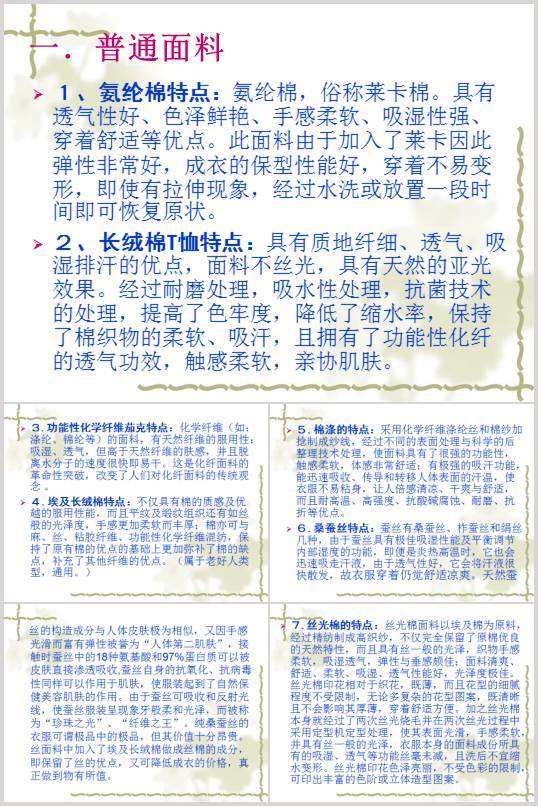 一．普通面料
１、氨纶棉特点：氨纶棉，俗称莱卡棉。具有
透气性好、色泽鲜艳、手感柔软、吸湿性强、
穿着舒适等优点。此面料由于加入了莱卡因此
弹性非常好，成衣的保型性能好，穿着不易变
形，即使有拉伸现象，经过水洗或放置一段时
间即可恢复原状。
２、长绒棉T恤特点：具有质地纤细、透气、吸
湿排汗的优点，面料不丝光，具有天然的亚光
效果。经过耐磨处理，吸水性处理，抗菌技术
的处理，提高了色牢度，降低了缩水率，保持
了棉织物的柔软、吸汗，且拥有了功能性化纤
的透气功效，触感柔软，亲协肌肤。
３.功能性化学纤维茄克特点：化学纤维（如:
涤纶、锦纶等）的面料，有天然纤维的服用性:
吸湿、透气，但高于天然纤维的肤感，并且脱
离水分子的速度很快即易干。这是化纤面料的
革命性突破，改变了人们对化纤面料的传统观
念 。
４. 埃及长绒棉特点：不仅具有棉的质感及优
越的服用性能，而且平纹及缎纹组织还有如丝
般的光泽度，手感更加柔软而丰厚；棉亦可与
麻、丝、粘胶纤维、功能性化学纤维混纺，保
持了原有棉的优点的基础上更加弥补了棉的缺
点，补充了其他纤维的优点。（属于老好人类
型，通用。）
５. 棉涤的特点：采用化学纤维涤纶丝和棉纱加
捻制成纱线，经过不同的表面处理与科学的后
整理技术处理，使面料具有了很强的功能性，
触感柔软，体感非常舒适；有极强的吸汗功能，
能迅速吸收、传导和转移人体表面的汗温，使
衣服不易粘身，让人倍感清凉、干爽与舒适，
而且耐高温、高强度、抗酸碱腐蚀、耐磨、抗
折等优点。
６. 桑蚕丝特点：蚕丝有桑蚕丝、柞蚕丝和绢丝
几种，由于蚕丝具有极佳吸湿性能及平衡调节
内部湿度的功能，即便是炎热高温时，它也会
迅速吸走汗液，由于透气性好，它会将汗液很
快散发，故衣服穿着仍觉舒适凉爽。天然蚕
丝的构造成分与人体皮肤极为相似，又因手感
光滑而富有弹性被誉为“人体第二肌肤”，接
触时蚕丝中的18种氨基酸和97%蛋白质可以被
皮肤直接渗透吸收,蚕丝自身的抗氧化、抗病毒
性同样可以作用于肌肤，使服装起到了自然保
健美容肌肤的作用。由于蚕丝可吸收和反射光
线，使蚕丝服装呈现象牙般柔和光泽，而被称
为“珍珠之光”、“纤维之王”。纯桑蚕丝的
衣服可谓极品中的极品，但其价值十分昂贵。
丝面料中加入了埃及长绒棉做成丝棉的成分，
即保留了丝的优点，又可降低成衣的价格，真
正做到物有所值。
７. 丝光棉的特点：丝光棉面料以埃及棉为原料，
经过精纺制成高织纱，不仅完全保留了原棉优良
的天然特性，而且具有丝一般的光泽，织物手感
柔软，吸湿透气，弹性与垂感颇佳；面料清爽、
舒适、柔软、吸湿、透气性能好，光泽度极佳。
丝光棉印花相对于织花，既薄，而且花型的细腻
程度不受限制，无论多复杂的花型图案，既清晰
且不会影响其厚薄，穿着舒适方便。加之丝光棉
本身就经过了两次丝光烧毛并在两次丝光过程中
采用定型机定型处理，使其表面光滑，手感柔软，
并具有丝一般的光泽，衣服本身的面料成份所具
有的吸湿、透气等功能丝毫未减，且洗后不宜缩
水变形。丝光棉印花色泽亮丽，不受色彩的限制，
可印出丰富的色阶或立体造型图案。